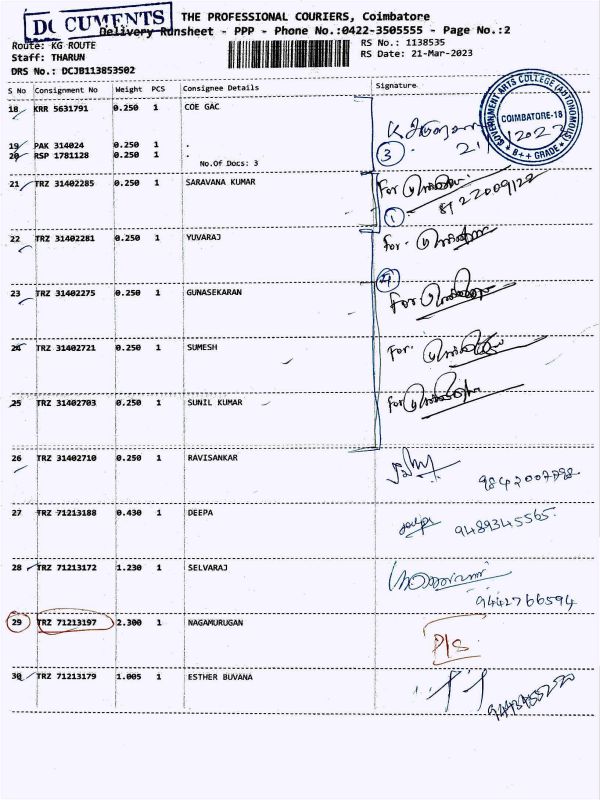 DOCUMENTS
THE PROFESSIONAL COURIERS, Coimbatore
Delivery Runsheet - PPP - Phone No.:0422-3505555 - Page No.:2
Route: KG ROUTE
RS No.: 1138535
Staff: THARUN
RS Date: 21-Mar-2023
DRS No.: DCJB113853502
S No Consignment No Weight PCS Consignee Details Signature
GOVERNMENT ARTS COLLEGE (AUTONOMOUS)
COIMBATORE-18
B++ GRADE
18 KRR 5631791 0.250 1 COE GAC
19 PAK 314024 0.250 1 .
20 RSP 1781128 0.250 1 .
3
No.Of Docs: 3
21 TRZ 31402285 0.250 1 SARAVANA KUMAR For
1
22 TRZ 31402281 0.250 1 YUVARAJ For.
4
23 TRZ 31402275 0.250 1 GUNASEKARAN For
24 TRZ 31402721 0.250 1 SUMESH For.
25 TRZ 31402703 0.250 1 SUNIL KUMAR For
26 TRZ 31402710 0.250 1 RAVISANKAR
27 TRZ 71213188 0.430 1 DEEPA
9489345565.
28 TRZ 71213172 1.230 1 SELVARAJ
9442766594
29 TRZ 71213197 2.300 1 NAGAMURUGAN
P/S
30 TRZ 71213179 1.005 1 ESTHER BUVANA